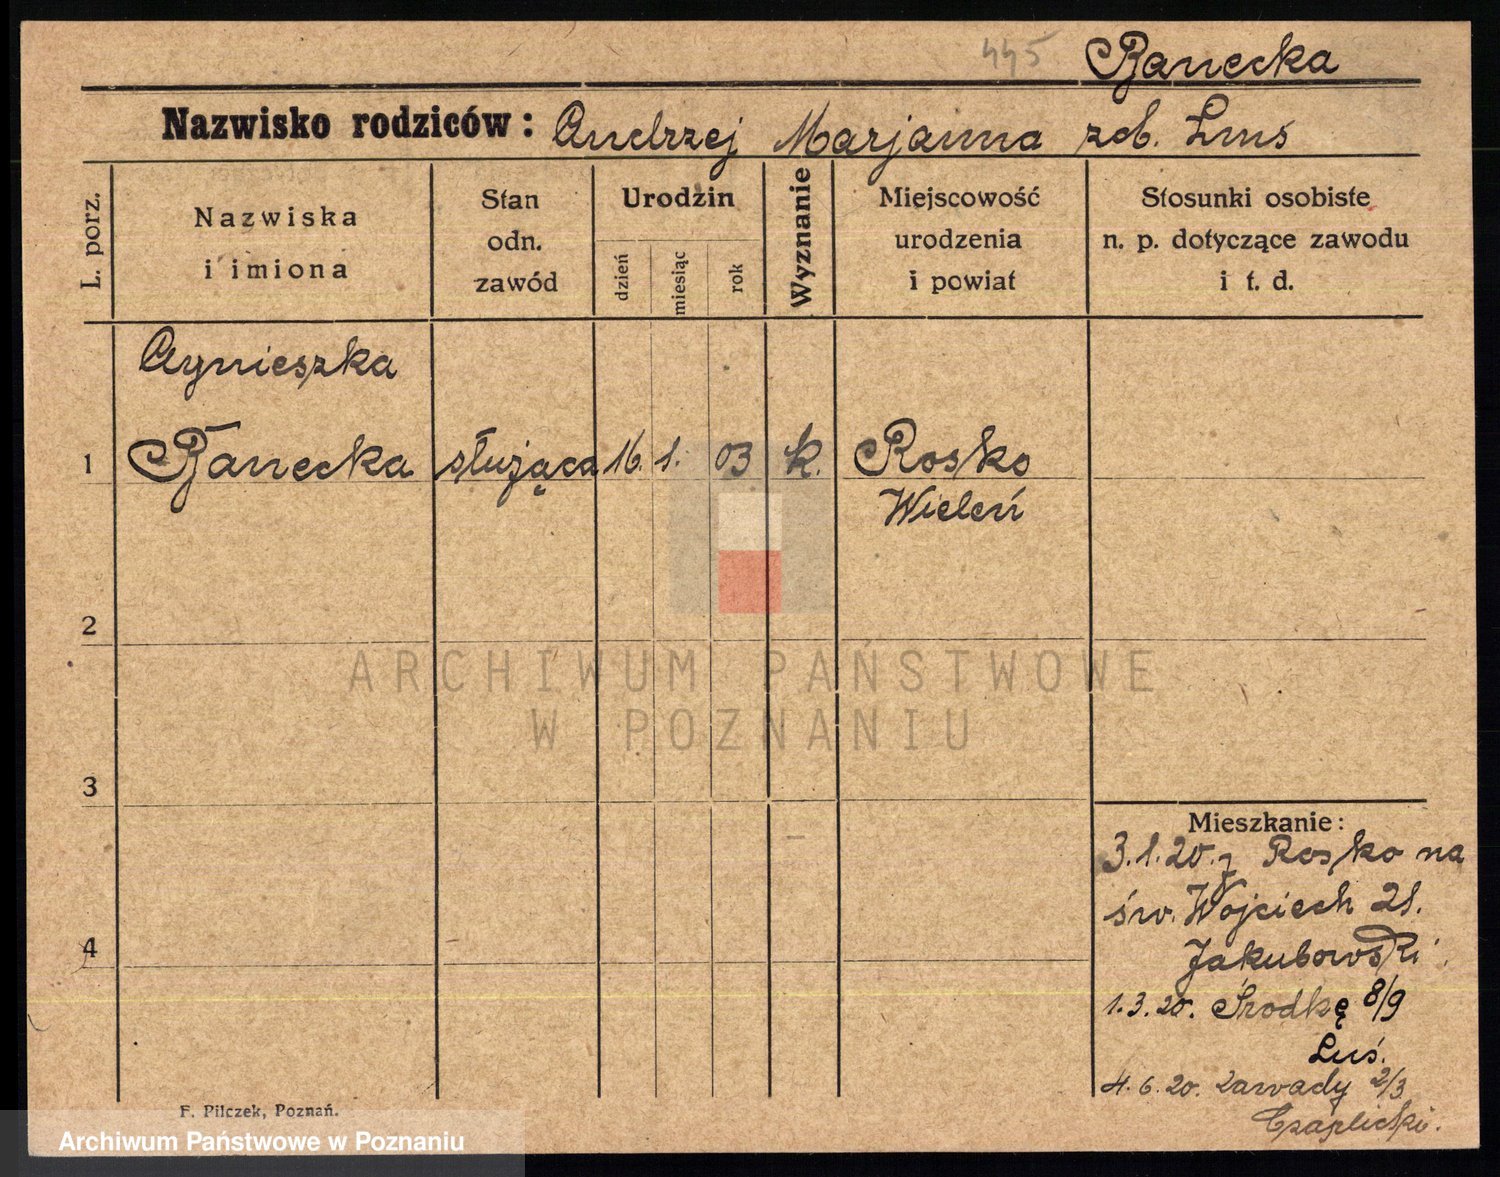 445 Banecka
Nazwisko rodziców: Andrzej Marjanna zob. Luś
L. porz.
Nazwiska
i imiona
Stan
odn.
zawód
Urodzin
dzień
miesiąc
rok
Wyznanie
Miejscowość
urodzenia
i powiat
Stosunki osobiste
n. p. dotyczące zawodu
i t. d.
Agnieszka
1 Banecka służąca 16. 1. 03 k. Rosko
Wieleń
2
3
4
Mieszkanie:
3.1.20. z Rosko na
św. Wojciech 21.
Jakubowski.
1.3.20. Śródkę 8/9
Luś.
4.6.20. Zawady 2/3
Czaplicki.
F. Pilczek, Poznań.
ARCHIWUM PAŃSTWOWE
W POZNANIU
Archiwum Państwowe w Poznaniu